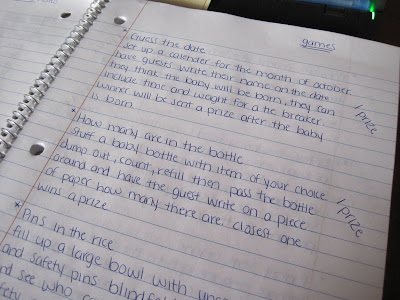 games
* Guess the date
set up a calender for the month of october
have guests write their name on the date
they think the baby will be born, they can
include time and weight for a tie breaker
winner will be sent a prize after the baby
is born
1 prize
* How many are in the bottle
stuff a baby bottle with item of your choice
dump out, count, refill then pass the bottle
around and have the guest write on a piece
of paper how many there are. closest one
wins a prize
1 prize
* Pins in the rice
fill up a large bowl with
and safety pins
and see who